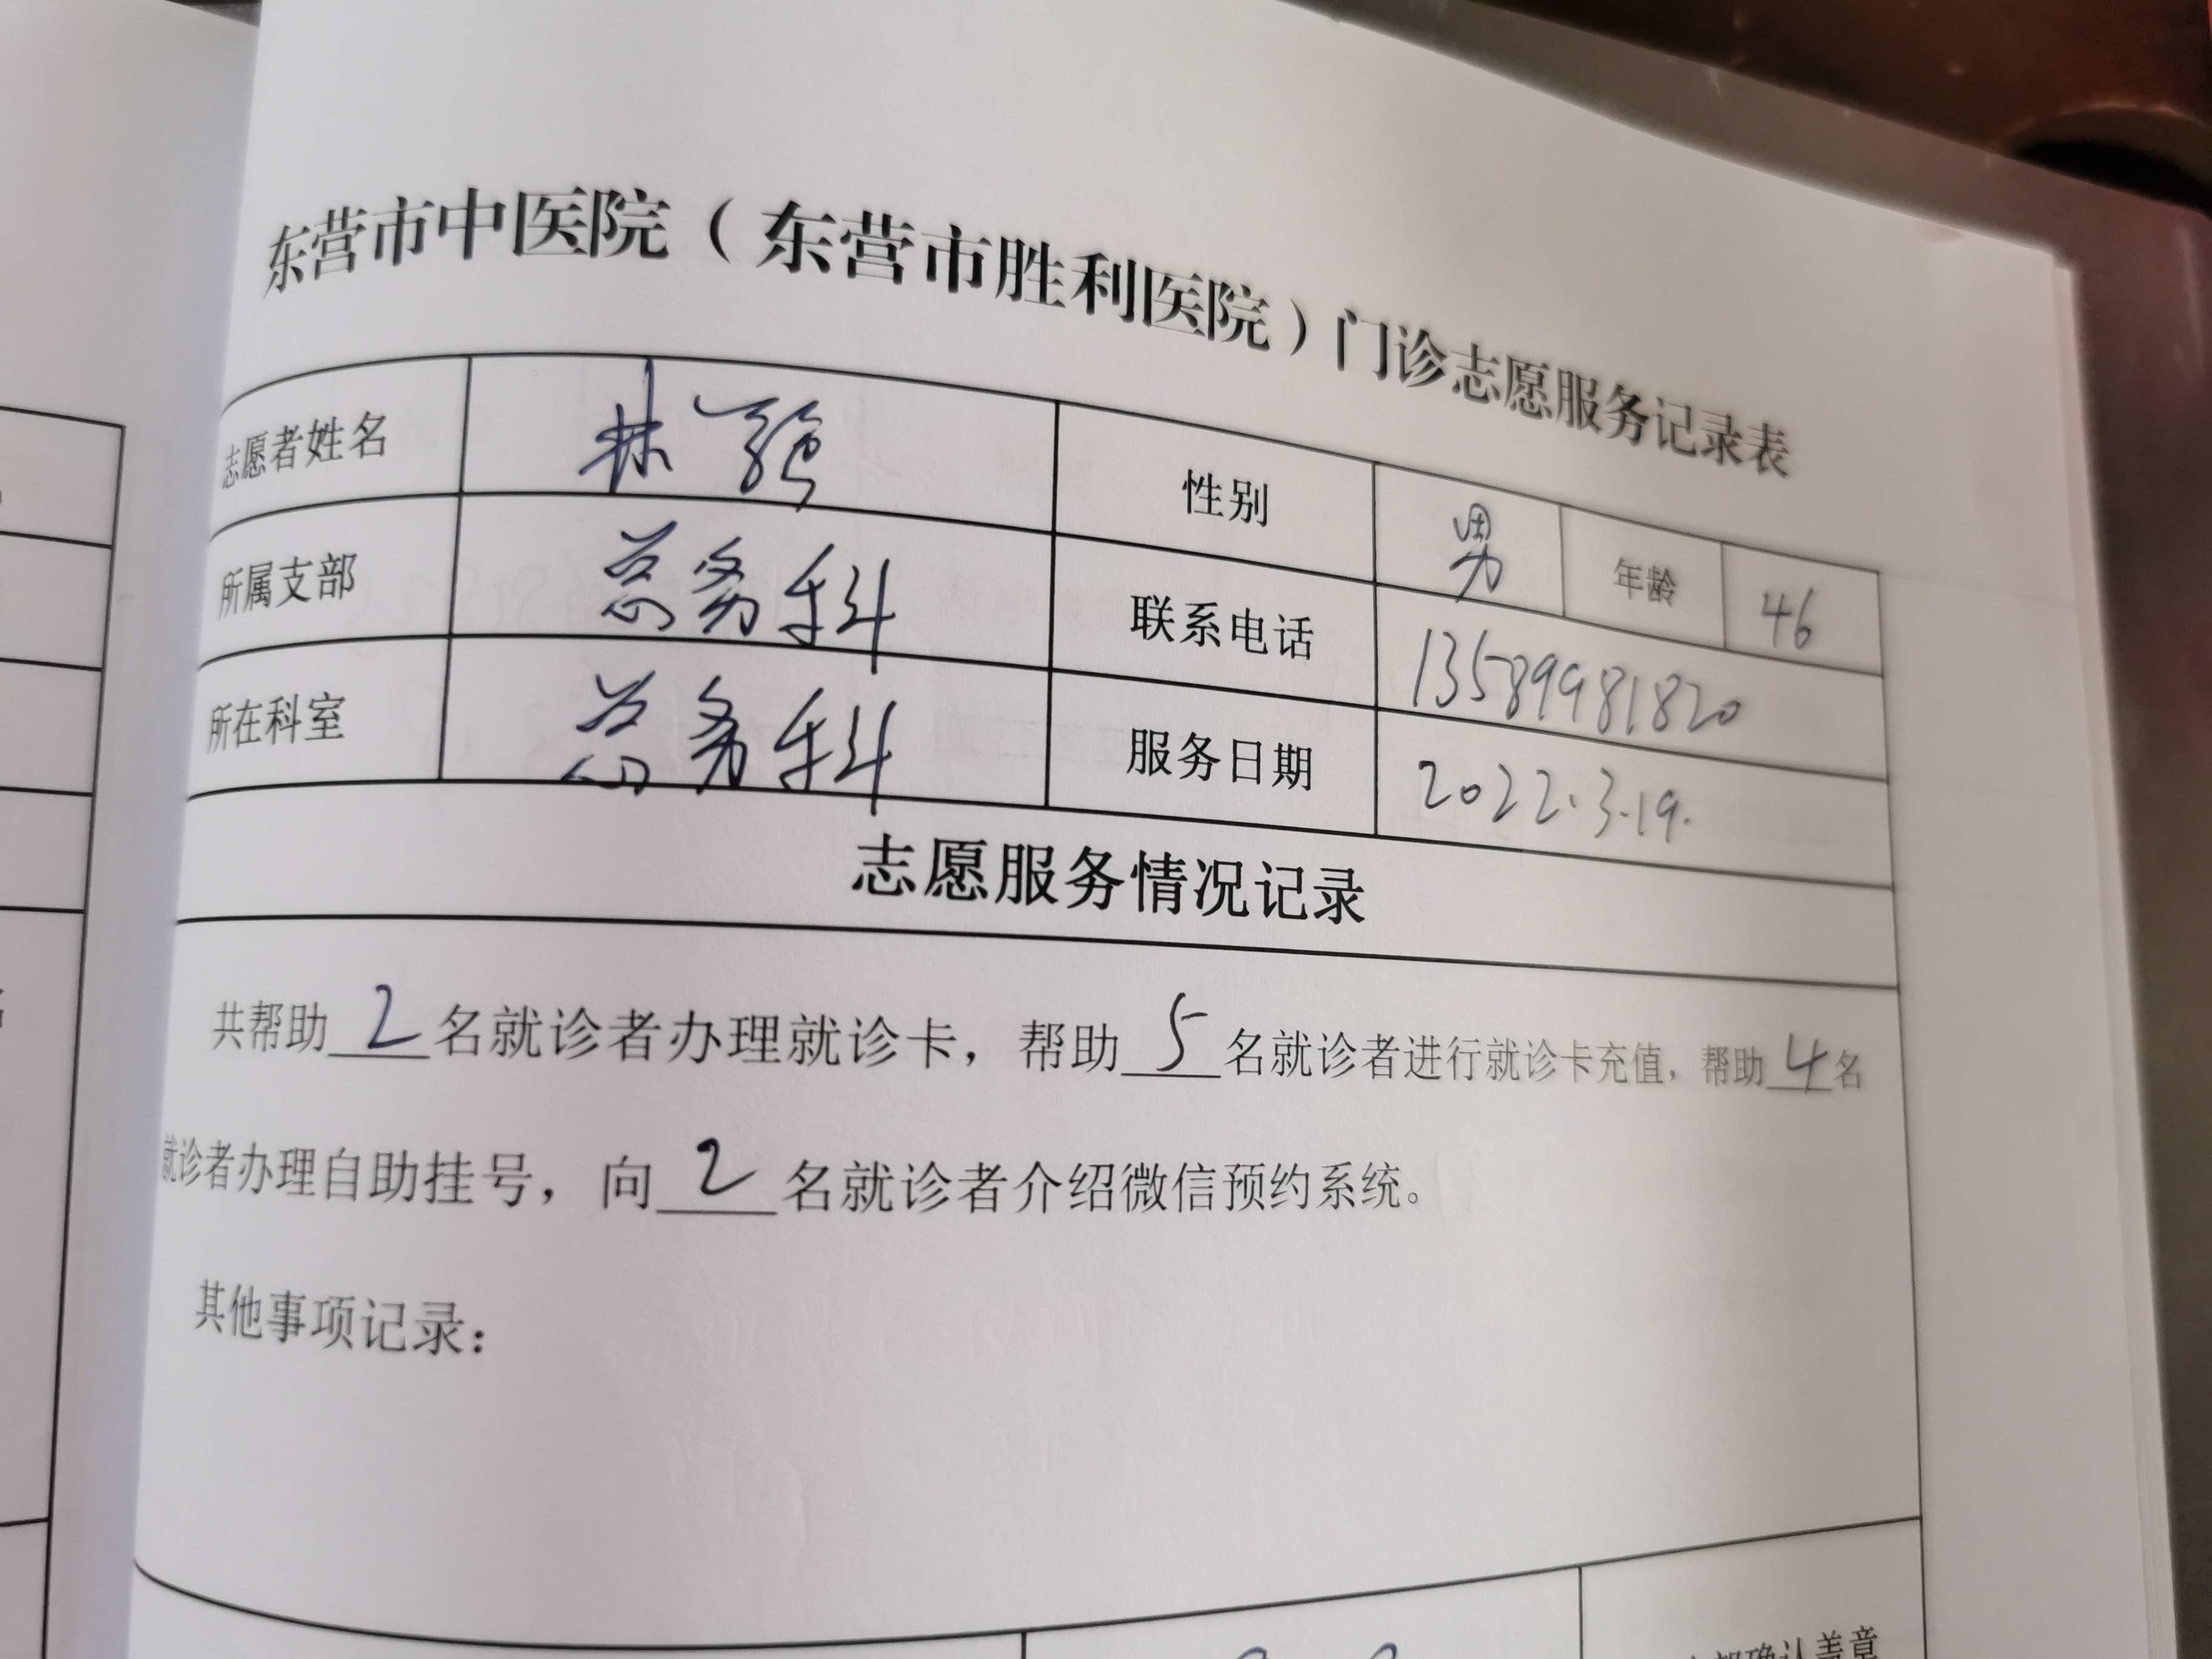 东营市中医院（东营市胜利医院）门诊志愿服务记录表
志愿者姓名 林 性别 男 年龄 46
所属支部 总务科 联系电话 13589981820
所在科室 总务科 服务日期 2022.3.19.
志愿服务情况记录
共帮助2名就诊者办理就诊卡，帮助5名就诊者进行就诊卡充值，帮助4名
就诊者办理自助挂号，向2名就诊者介绍微信预约系统。
其他事项记录：
确认盖章